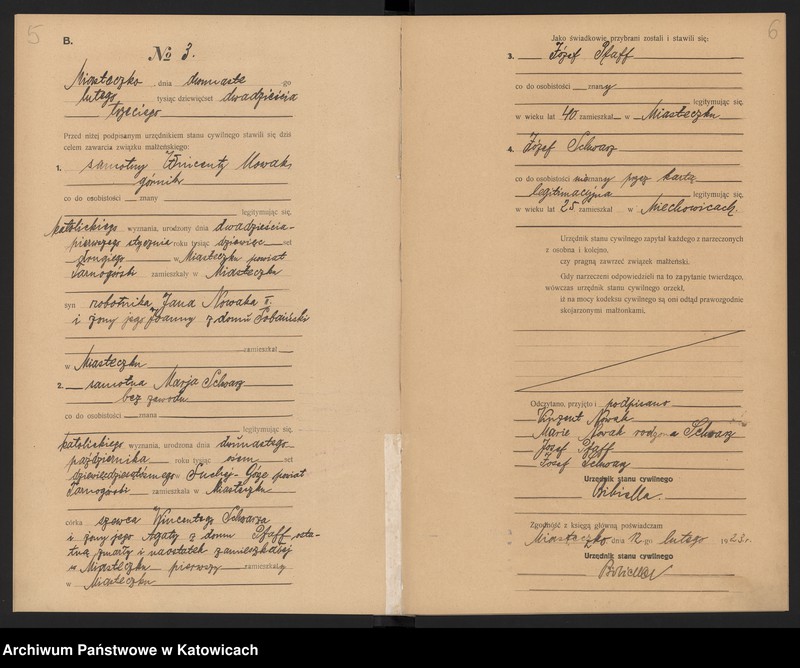 5
B.
No 3.
Miasteczko, dnia dwunaste go
lutego tysiąc dziewięćset dwadzieścia
trzeciego
Przed niżej podpisanym urzędnikiem stanu cywilnego stawili się dziś
celem zawarcia związku małżeńskiego:
1. samotny Wincenty Nowak
górnik
co do osobistości znany
legitymując się,
katolickiego wyznania, urodzony dnia dwudziestа-
pierwszego stycznia roku tysiąc dziewięc set
drugiego w Miasteczku powiat
Tarnogórski zamieszkały w Miasteczku
syn robotnika Jana Nowaka II.
i żony jego Joanny z domu
zamieszkał
w Miasteczku
2. samotna Marja Schwarz
bez zawodu
co do osobistości znana
legitymując się,
katolickiego wyznania, urodzona dnia dwunastego
października roku tysiąc ośm set
w Suchej-Górze powiat
Tarnogórski zamieszkała w Miasteczku
córka szewca Wincentego Schwarza
i żony jego Agaty z domu Pfaff osta-
tnia zmarły i naostatek zamieszkałej
w Miasteczku pierwszy zamieszkały
w Miasteczku
6
Jako świadkowie przybrani zostali i stawili się:
3. Józef Pfaff
co do osobistości znany
legitymując się,
w wieku lat 40 zamieszkał w Miasteczku
4. Józef Schwarz
co do osobistości nieznany przez kartę
legitimacyjna legitymując się,
w wieku lat 25 zamieszkał w Miechowicach.
Urzędnik stanu cywilnego zapytał każdego z narzeczonych
z osobna i kolejno,
czy pragną zawrzeć związek małżeński.
Gdy narzeczeni odpowiedzieli na to zapytanie twierdząco,
wówczas urzędnik stanu cywilnego orzekł,
iż na mocy kodeksu cywilnego są oni odtąd prawozgodnie
skojarzonymi małżonkami.
Odczytano, przyjęto i podpisano
Vinzent Nowak
Marie Nowak rodzona Schwarz
Josef Pfaff
Józef Schwarz
Urzędnik stanu cywilnego
Bibiella.
Zgodność z księgą główną poświadczam
Miasteczko dnia 12-go lutego 1923 r.
Urzędnik stanu cywilnego
Bibiella
Archiwum Państwowe w Katowicach